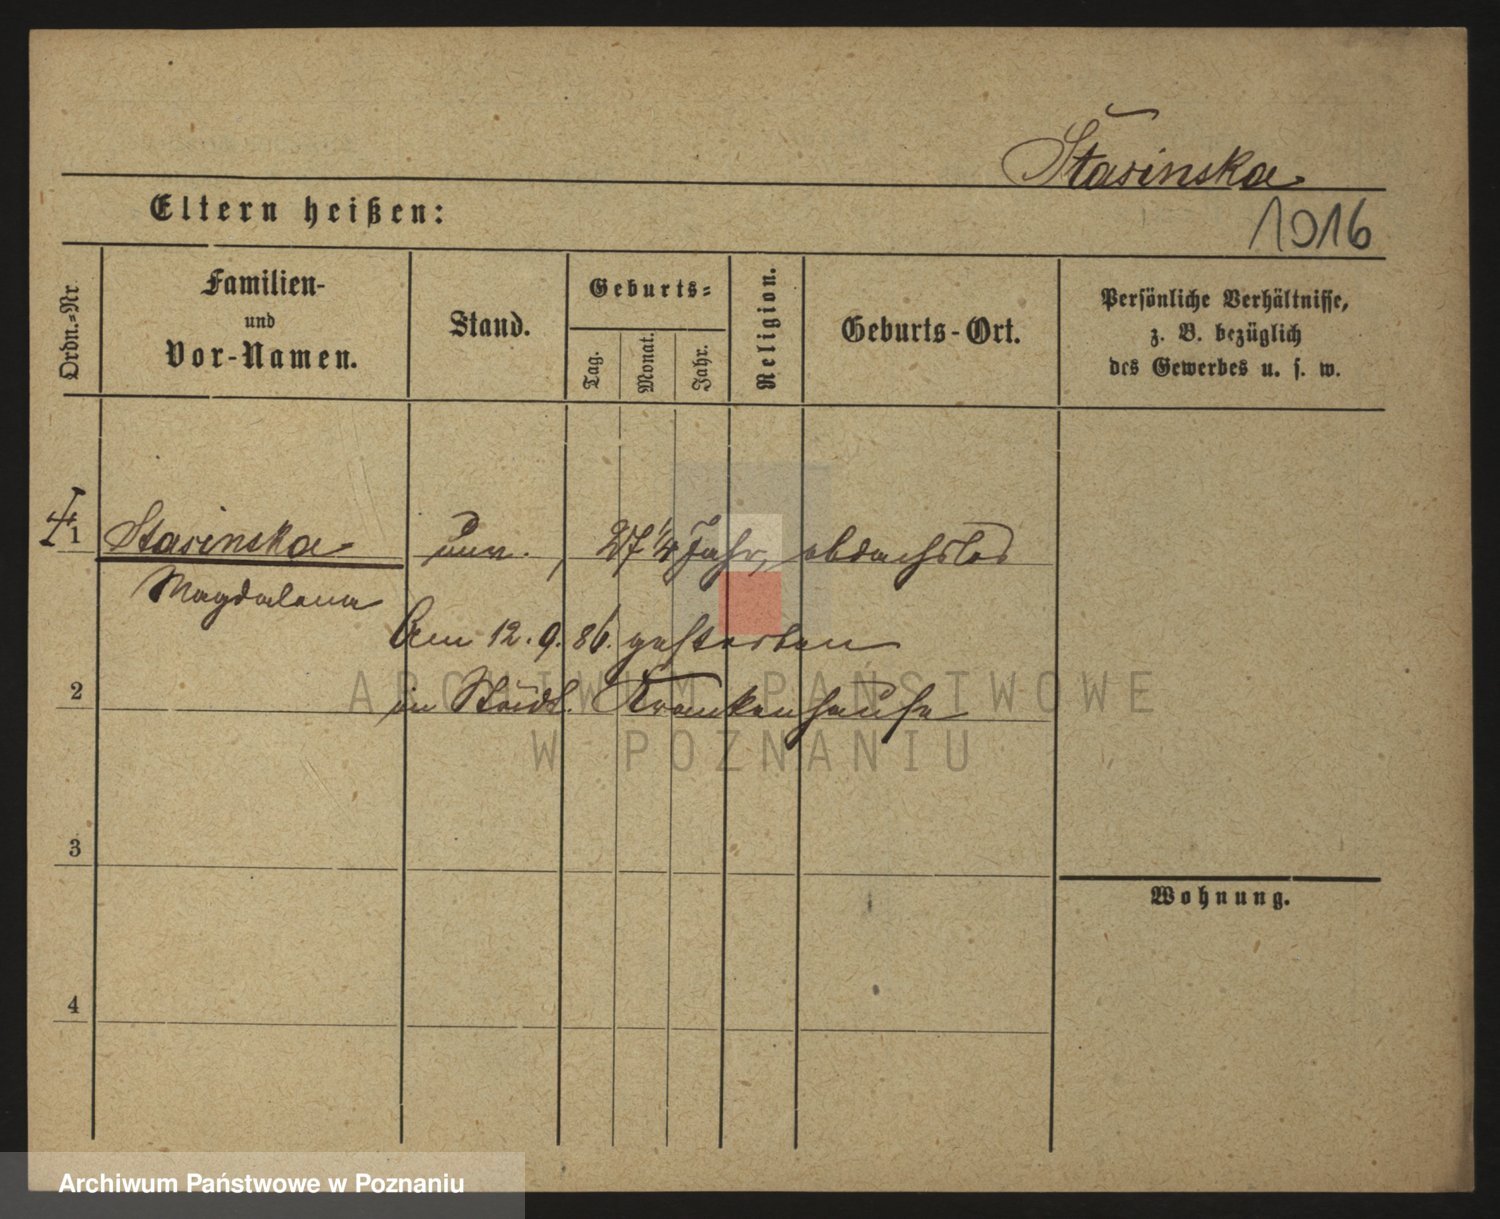 Stasinska
Eltern heißen:
1016
Ordn.-Nr
Familien-
und
Vor-Namen.
Stand.
Geburts-
Tag.
Monat.
Jahr.
Religion.
Geburts-Ort.
Persönliche Verhältnisse,
z. B. bezüglich
des Gewerbes u. s. w.
1 Stasinska unv., 27 1/4 Jahr, obdachslos
Magdalena
Am 12. 9. 86. gestorben
2 in Städt. Krankenhause
ARCHIWUM PAŃSTWOWE
W POZNANIU
3
Wohnung.
4
Archiwum Państwowe w Poznaniu